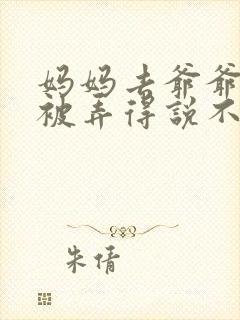 妈妈去爷爷
被弄得說不
朱倩